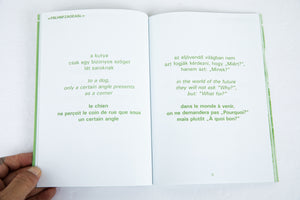 a kutya
csak egy bizonyos szöget
lát saroknak
to a dog,
only a certain angle presents
as a corner
le chien
ne perçoit le coin de rue que sous
un certain angle
az eljövendő világban nem
azt fogják kérdezni, hogy „Miért?”,
hanem azt: „Minek?”
in the world of the future
they will not ask “Why?”,
but: “What for?”
dans le monde à venir,
on ne demandera pas „Pourquoi?”
mais plutôt „A quoi bon?”